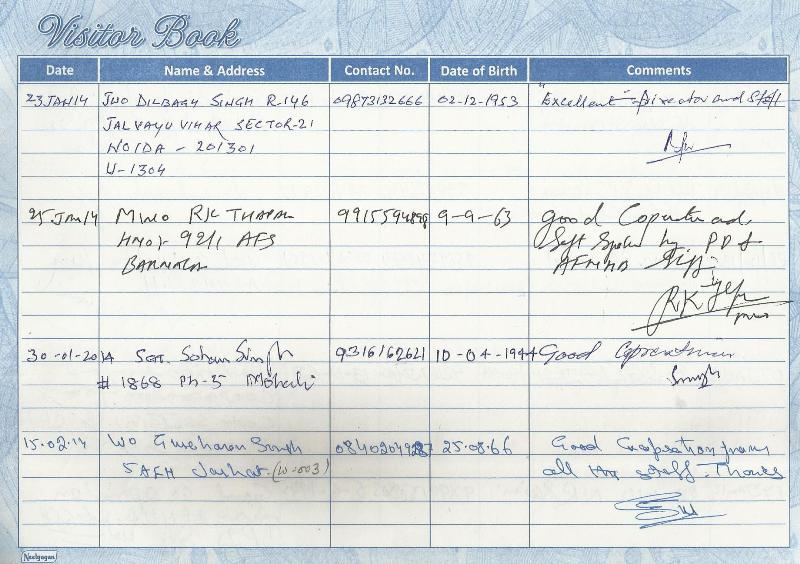 Visitor Book
Date Name & Address Contact No. Date of Birth Comments
23 JAN 14 JWO DILBAGH SINGH R-146 09873132666 02-12-1953 "Excellent - Director and Staff
JAL VAYU VIHAR SECTOR-21
NOIDA - 201301
W-1304
25 Jan 14 MWO RK THAPAR 9-9-63 good
92/1 AFS Soft Spoken by PD &
BARNALA AFNHB Staff
RK
mwo
30-01-2014 Sgt. Sohan Singh 9316162621 10-04-1944 Good
# 1868 Ph-5 Mohali Singh
15.02.14 WO Gurcharan Singh 25.08.66 Good Cooperation from
5 AFH Jorhat (W-003) all the staff. Thanks
Neelgagan